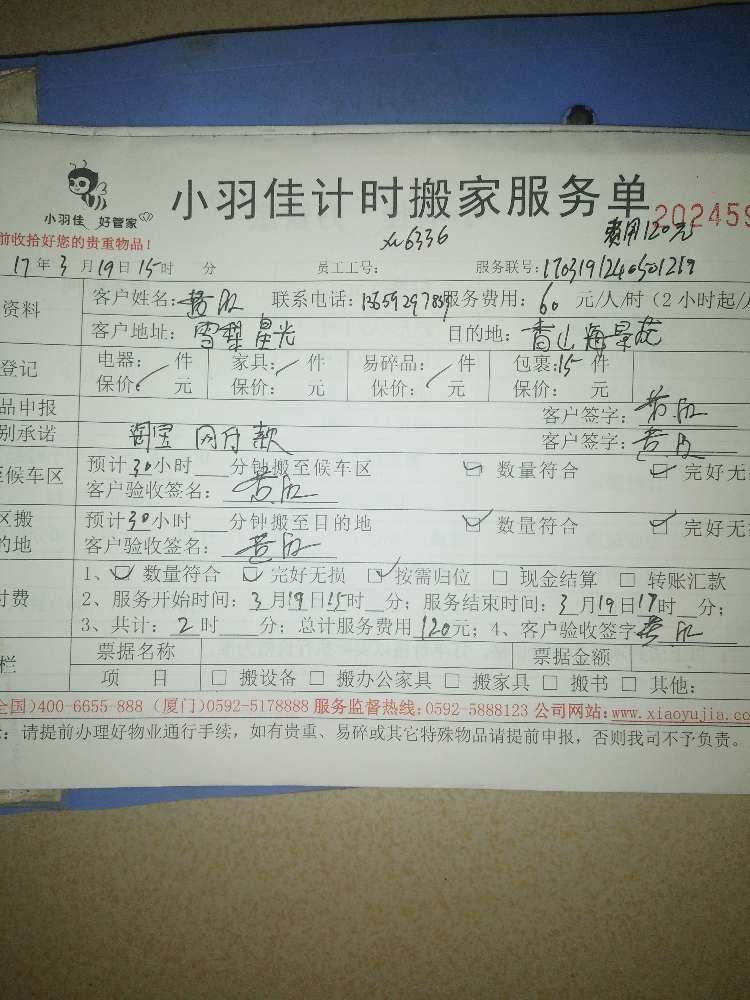 小羽佳 好管家
小羽佳计时搬家服务单
202459
前收拾好您的贵重物品！
xu6336
费用120元
17年3月19日15时 分 员工工号： 服务联号：
资料
客户姓名： 联系电话： 服务费用：60元/人/时（2小时起/
客户地址：雪梨星光 目的地：香山海景花
登记
电器： 件 家具： 件 易碎品： 件 包裹：15件
保价： 元 保价： 元 保价： 元 保价： 元
品申报 客户签字：
别承诺 淘宝网付款 客户签字：
至候车区
预计30小时 分钟搬至候车区 数量符合 完好无
客户验收签名：
区搬
预计30小时 分钟搬至目的地 数量符合 完好无
的地
客户验收签名：
1、 数量符合 完好无损 按需归位 现金结算 转账汇款
付费 2、服务开始时间：3月19日15时 分；服务结束时间：3月19日17时 分；
3、共计：2时 分；总计服务费用120元；4、客户验收签字
栏
票据名称 票据金额
项 目 搬设备 搬办公家具 搬家具 搬书 其他：
全国)400-6655-888（厦门)0592-5178888 服务监督热线：0592-5888123 公司网站：www.xiaoyujia.co
：请提前办理好物业通行手续，如有贵重、易碎或其它特殊物品请提前申报，否则我司不予负责。